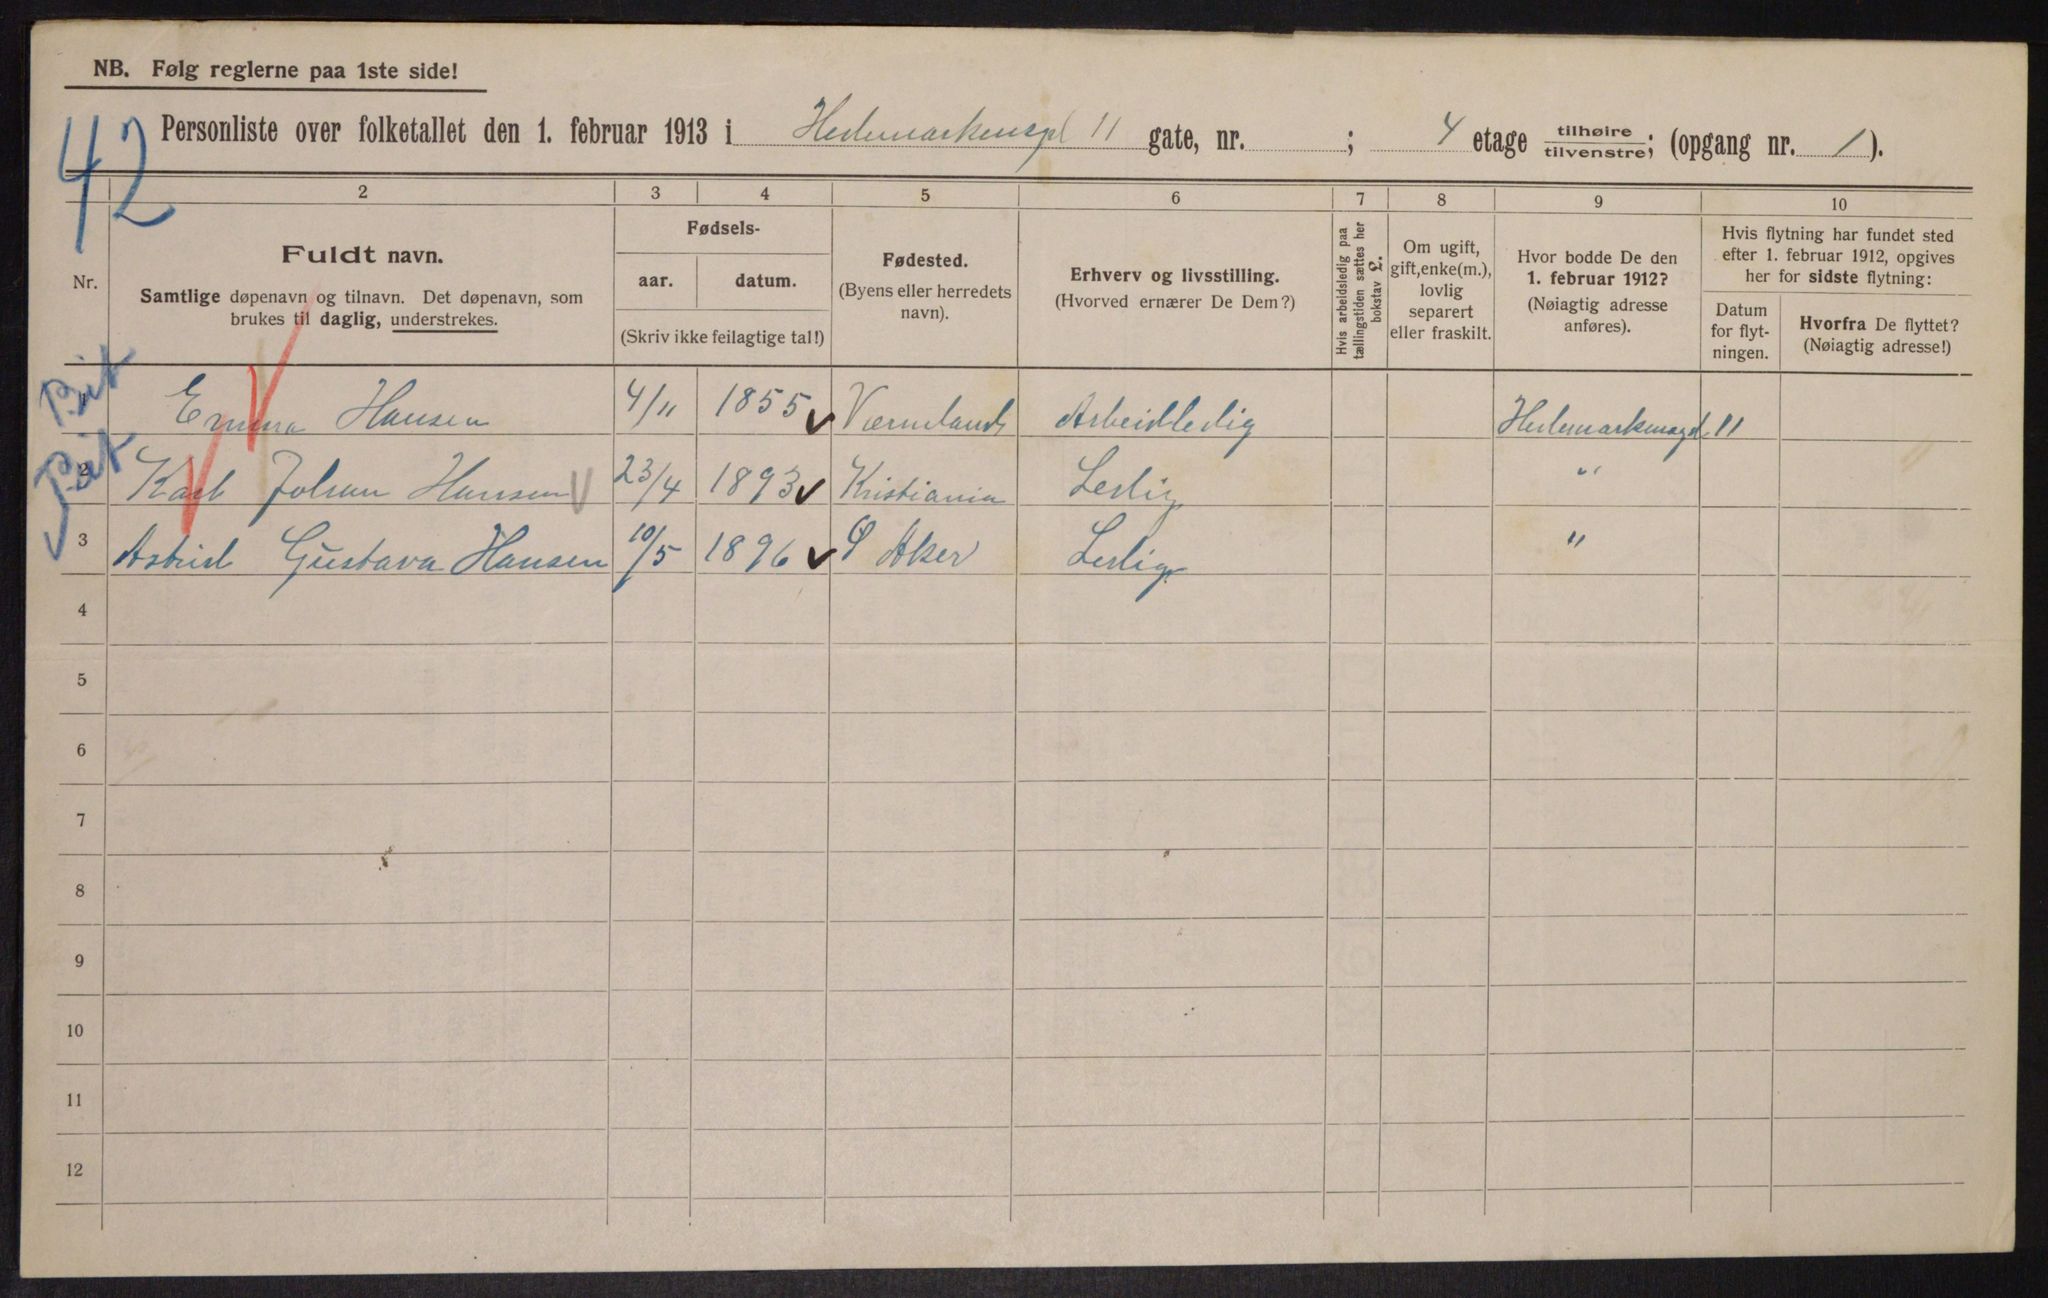 NB. Følg reglerne paa 1ste side!
42
Personliste over folketallet den 1. februar 1913 i Hedemarkensgd 11 gate, nr. ; 4 etage tilhøire tilvenstre; (opgang nr. 1).
2 3 4 5 6 7 8 9 10
Nr.
Fuldt navn.
Samtlige døpenavn og tilnavn. Det døpenavn, som
brukes til daglig, understrekes.
Fødsels-
aar. datum.
(Skriv ikke feilagtige tal!)
Fødested.
(Byens eller herredets
navn).
Erhverv og livsstilling.
(Hvorved ernærer De Dem?)
Hvis arbeidsledig paa
tællingstiden sættes her
bokstav L.
Om ugift,
gift, enke(m.),
lovlig
separert
eller fraskilt.
Hvor bodde De den
1. februar 1912?
(Nøiagtig adresse
anføres).
Hvis flytning har fundet sted
efter 1. februar 1912, opgives
her for sidste flytning:
Datum
for flyt-
ningen.
Hvorfra De flyttet?
(Nøiagtig adresse!)
1 Emma Hansen 4/11 1855 Værmland Arbeidledig Hedemarkensgd 11
2 Karl Johan Hansen 23/4 1893 Kristiania Ledig "
3 Astrid Gustava Hansen 10/5 1896 Aker Ledig "
4
5
6
7
8
9
10
11
12